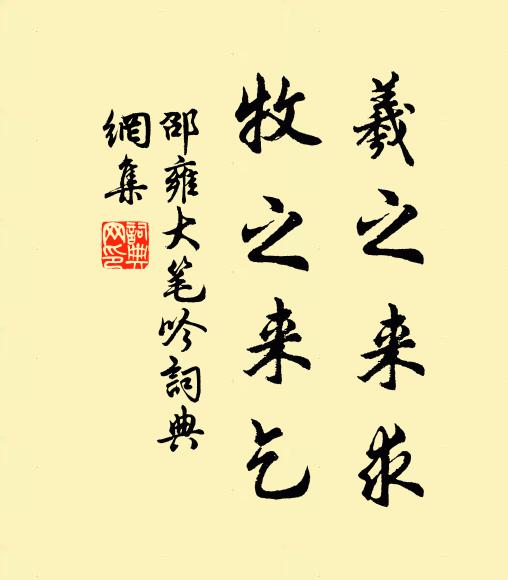 羲之来求
牧之来乞
邵雍大笔吟詞典
網集
詞典网印